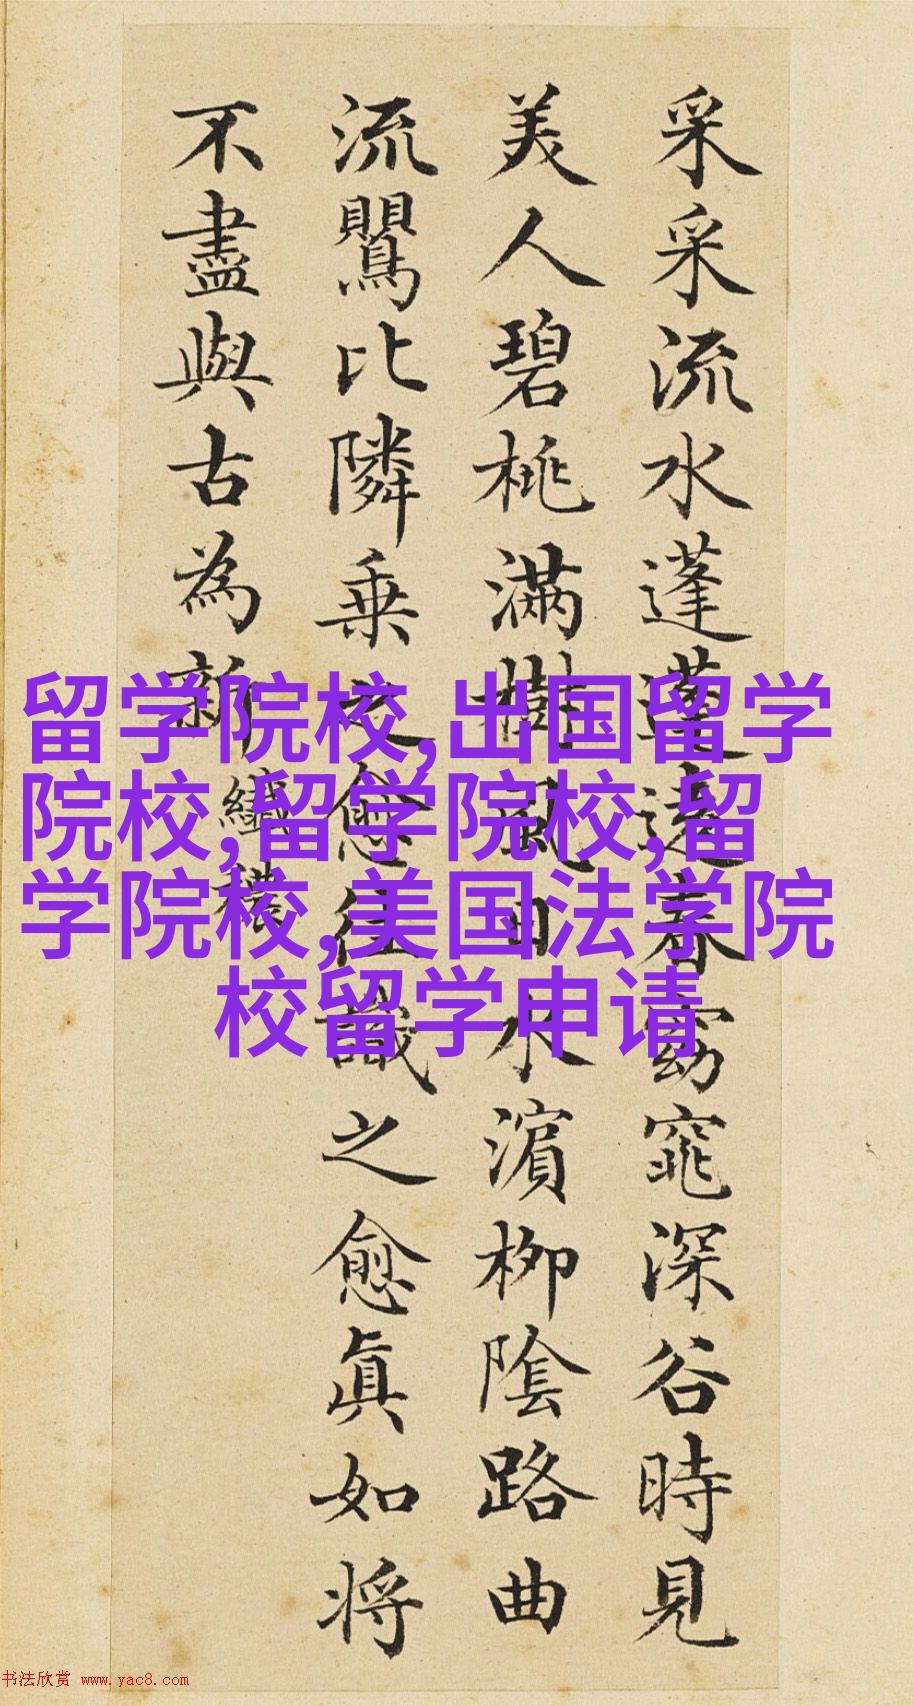 采采流水蓬蓬遠春窈窕深谷時見
美人碧桃滿樹風日水濱柳陰路曲
流鸎比隣乗之愈往識之愈眞如将
不盡與古為新
纖穠
留学院校,出国留学
院校,留学院校,留
学院校,美国法学院
校留学申请
书法欣赏 www.yac8.com